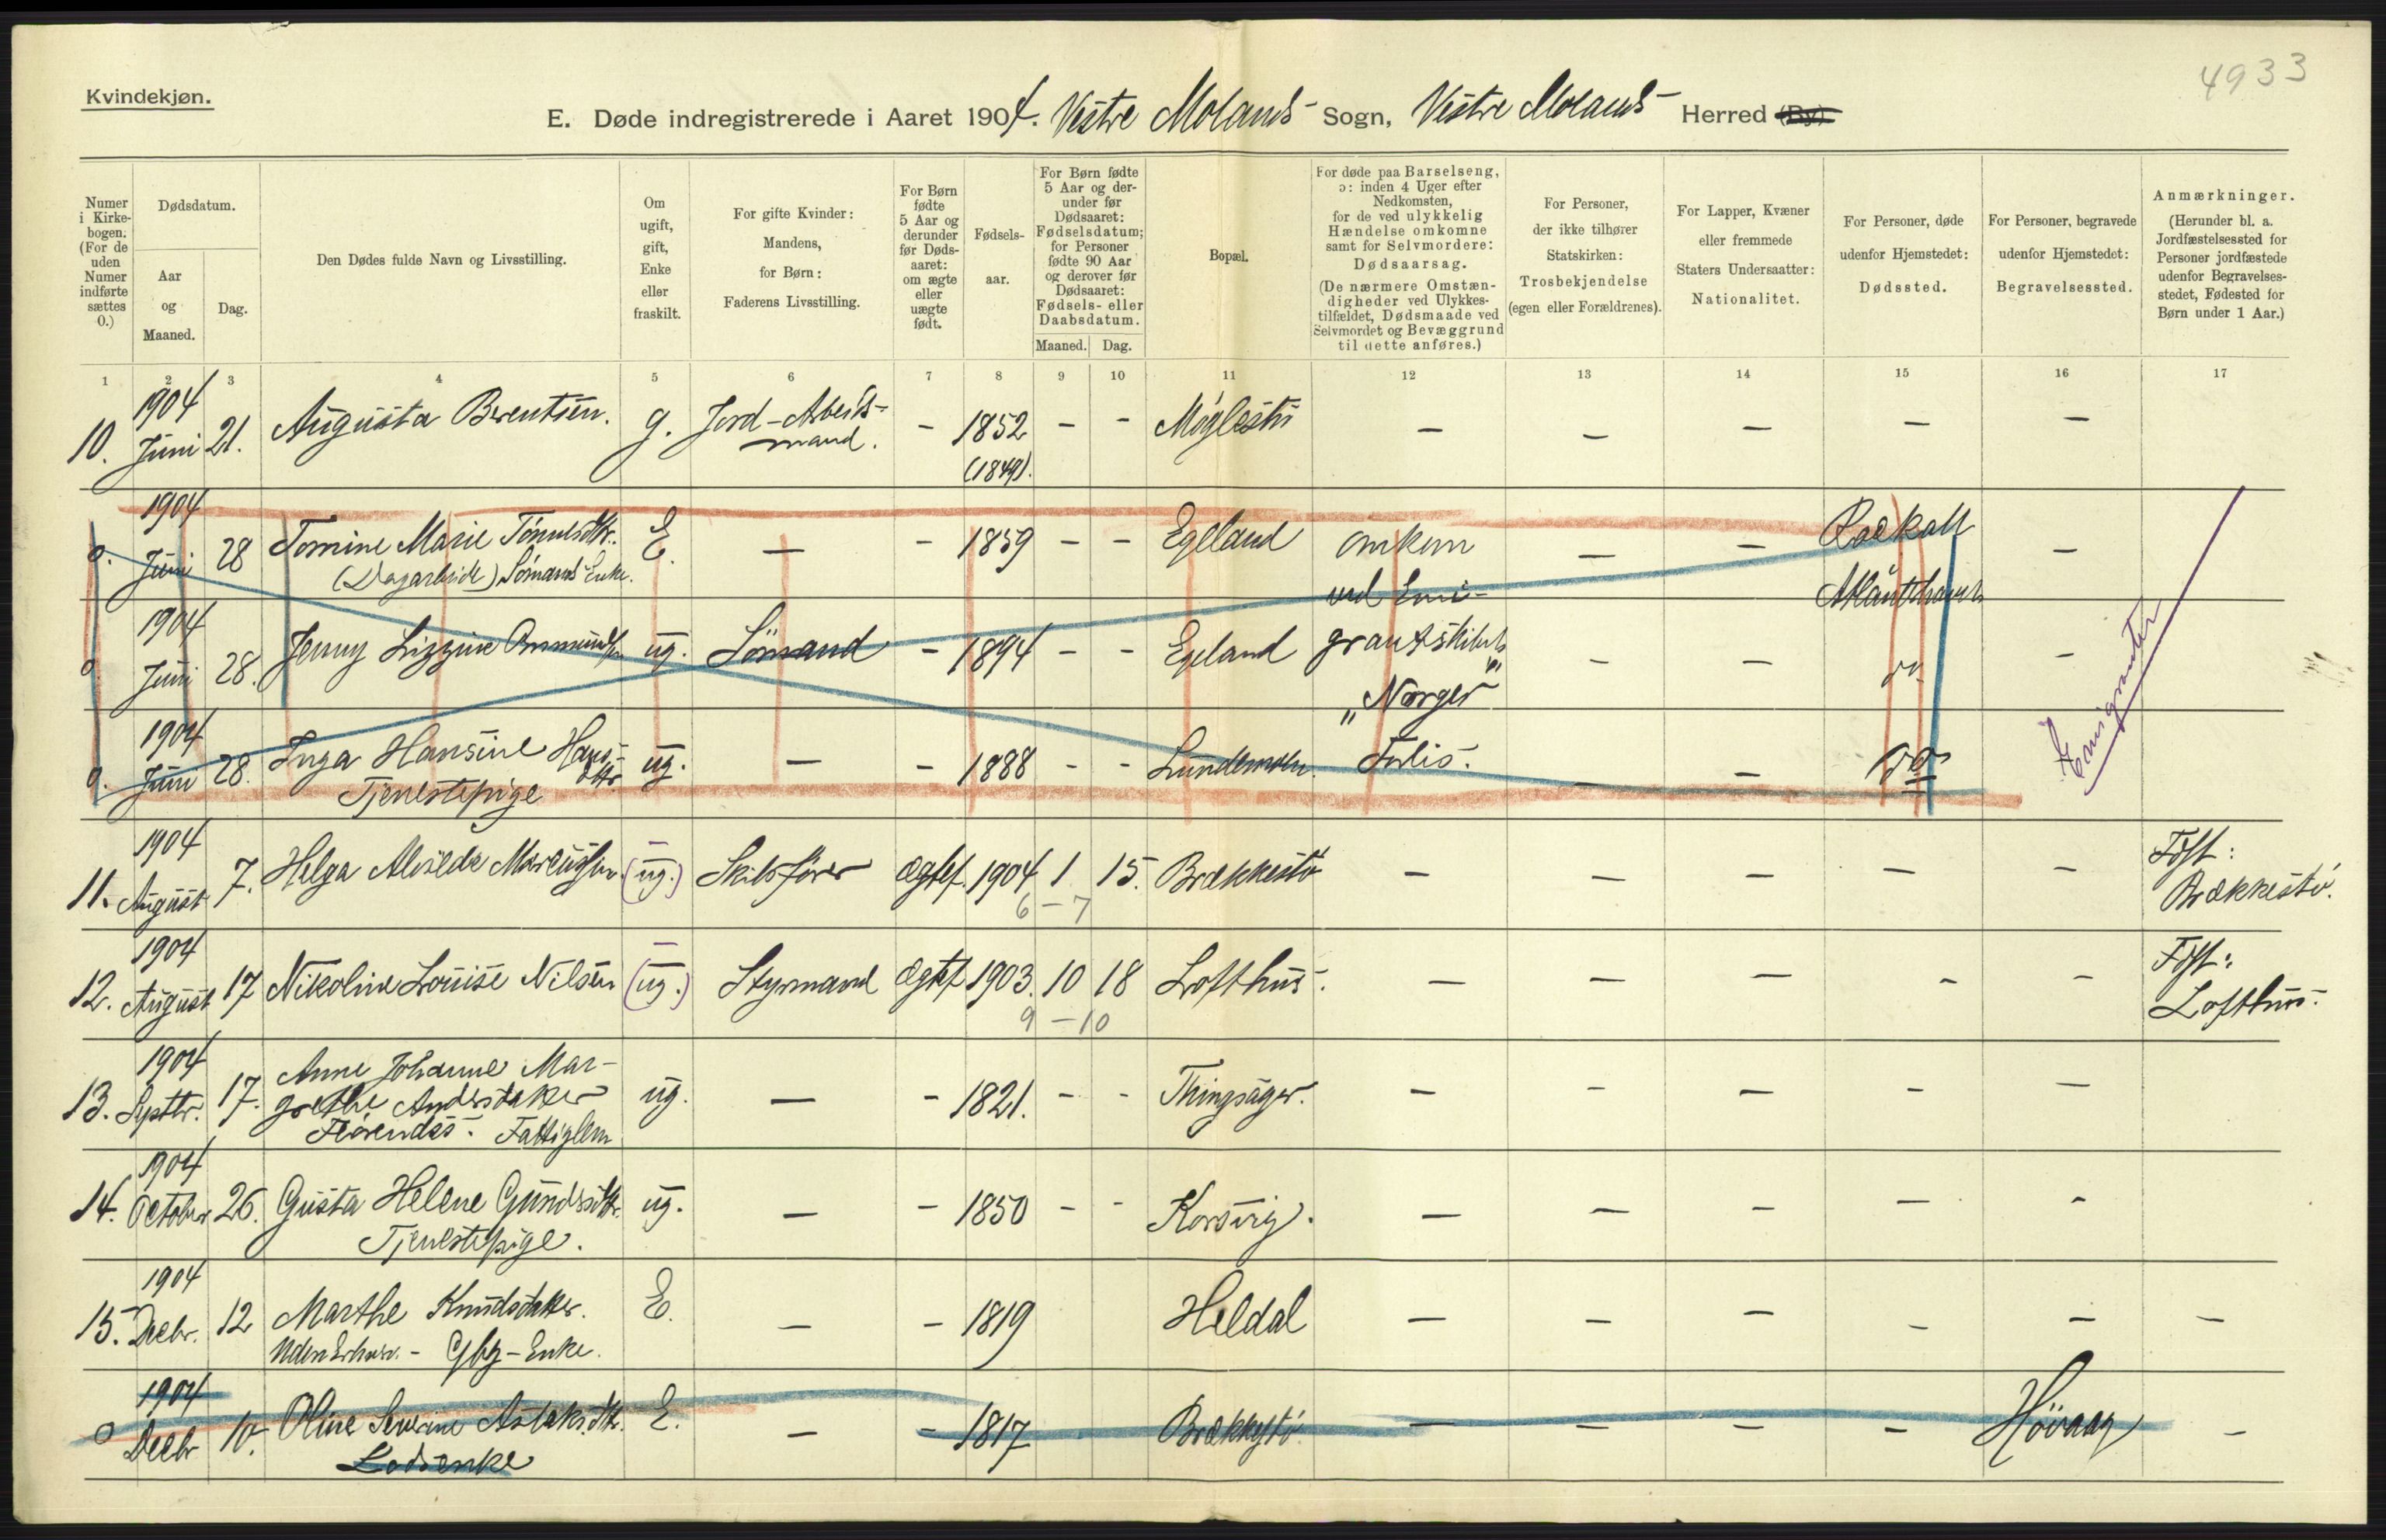 4933
Kvindekjøn.
E. Døde indregistrerede i Aaret 1904. Vestre Molands Sogn, Vestre Molands Herred (By).
Numer i Kirke-bogen. (For de uden Numer indførte sættes 0.)
Dødsdatum.
Aar og Maaned.
Dag.
Den Dødes fulde Navn og Livsstilling.
Om ugift, gift, Enke eller fraskilt.
For gifte Kvinder: Mandens, for Børn: Faderens Livsstilling.
For Børn fødte 5 Aar og derunder før Døds-aaret: om ægte eller uægte født.
Fødsels-aar.
For Børn fødte 5 Aar og der-under før Dødsaaret: Fødselsdatum; for Personer fødte 90 Aar og derover før Dødsaaret: Fødsels- eller Daabsdatum.
Maaned. Dag.
Bopæl.
For døde paa Barselseng, ɔ: inden 4 Uger efter Nedkomsten, for de ved ulykkelig Hændelse omkomne samt for Selvmordere: Dødsaarsag. (De nærmere Omstæn-digheder ved Ulykkes-tilfældet, Dødsmaade ved Selvmordet og Bevæggrund til dette anføres.)
For Personer, der ikke tilhører Statskirken: Trosbekjendelse (egen eller Forældrenes).
For Lapper, Kvæner eller fremmede Staters Undersaatter: Nationalitet.
For Personer, døde udenfor Hjemstedet: Dødssted.
For Personer, begravede udenfor Hjemstedet: Begravelsessted.
Anmærkninger. (Herunder bl. a. Jordfæstelsessted for Personer jordfæstede udenfor Begravelses-stedet, Fødested for Børn under 1 Aar.)
1 2 3 4 5 6 7 8 9 10 11 12 13 14 15 16 17
1904
10. Juni 21. Augusta Berentsen. g. Jord-Arbeids- - 1852 - - Møglestu - - - - -
mand.
(1849).
1904
0. Juni 28 Tomine Marie Tønnesdtr. E. - - 1859 - - Egeland omkom - - Rockall -
(Dagarbeide) Sømands Enke. ved Emi- Atlanthavet
1904
0 Juni 28. Jenny Lizzine Ommundsen ug. Sømand - 1894 - - Egeland grantskibets - - do -
"Norges"
1904
0. Juni 28. Inga Hansine Hans- ug. - - 1888 - - Lundemoen. Forlis. - - do
dtr.
Tjenestepige
Emigranter
1904
11. August 7. Helga Alvilde Marcussen (ug.) Skibsfører ægtef. 1904 1 15. Brækkestø - - - - - Fdst:
6 - 7
Brækkestø.
1904
12. August 17 Nikoline Louise Nilsen (ug.) Styrmand ægtef 1903. 10 18 Lofthus. - - - - - Fdst:
9 - 10
Lofthus.
1904
13. Septbr. 17. Anne Johanne Mar-
grethe Andersdatter ug. - - 1821. - - Thingsager. - - - - -
Fattiglem
1904
14. October 26. Gusta Helene Gundersdtr. ug. - - 1850 - - Korsvig. - - - - -
Tjenestepige.
1904
15. Decbr. 12 Marthe Knudsdatter. E. - - 1819 Heldal - - - - - -
Uden Erhverv. - Gbg-Enke.
1904
0 Decbr 10. Oline Severine Aslaksdtr. E. - - 1817 Brækkestø - - - - Høvaag -
Lodsenke